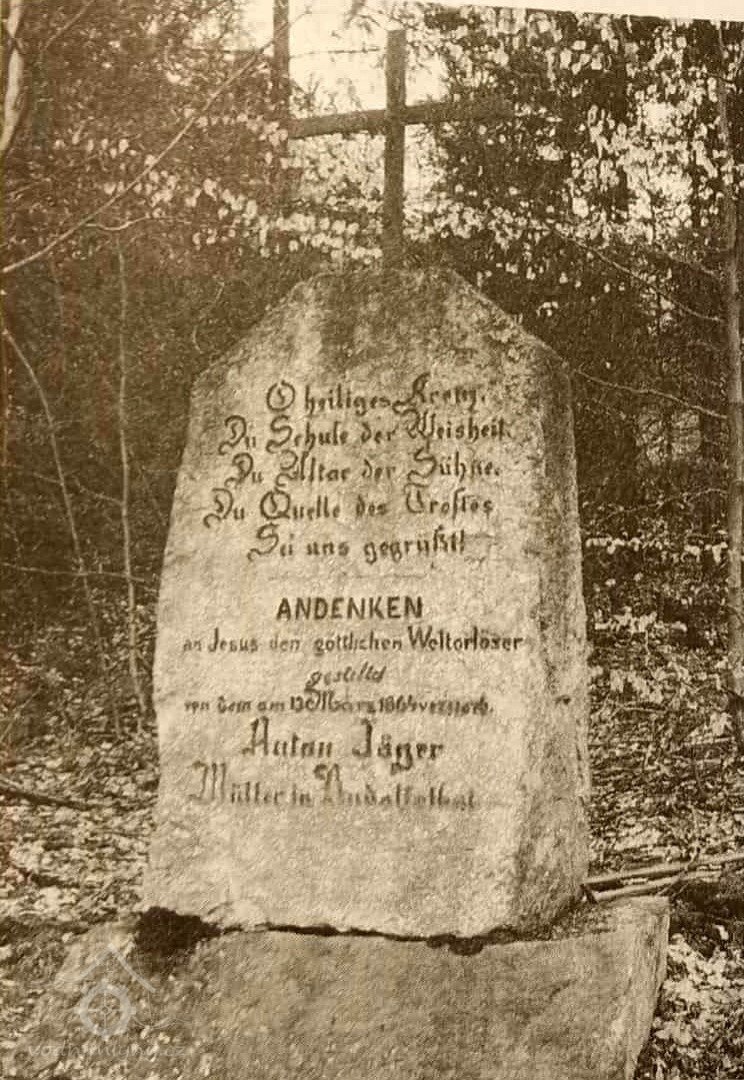 O heiliges Kreuz.
Du Schule der Weisheit.
Du Altar der Sühne.
Du Quelle des Trostes
Sei uns gegrüßt!
ANDENKEN
an Jesus den göttlichen Weltorlöser
gestiftet
von dem am 13 März 1864 verstorb.
Anton Jäger
Müller in
vodnimlyny.cz